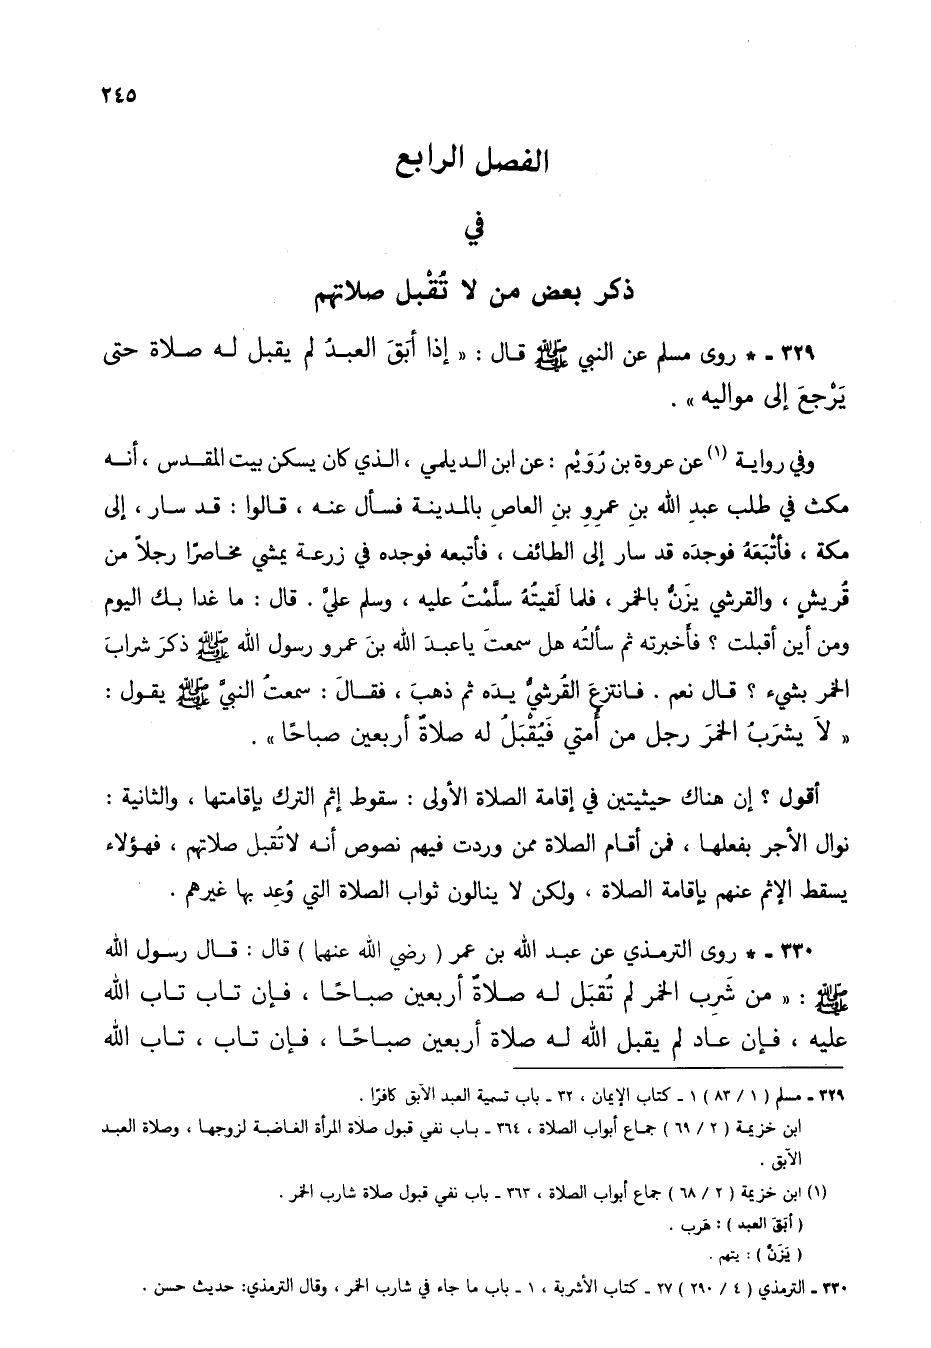 ٢٤٥
الفصل الرابع
في
ذكر بعض من لا تُقْبل صلاتهم
٣٢٩ ـ * روى مسلم عن النبي ﷺ قال : « إذا أَبَقَ العبدُ لم يقبل له صلاة حتى
يَرْجعَ إلى مواليه » .
وفي رواية (١) عن عروة بن رُوَيْم : عن ابن الديلمي ، الذي كان يسكن بيت المقدس ، أنه
مكث في طلب عبدِ الله بنِ عمرِو بنِ العاصِ بالمدينة فسأل عنه ، قالوا : قد سار ، إلى
مكة ، فأَتْبَعَهُ فوجدَه قد سار إلى الطائف ، فأتبعه فوجده في زرعة يمشي مخاصرًا رجلاً من
قُريشٍ ، والقرشي يزَنُّ بالخمر ، فلما لَقيتُهُ سلَّمْتُ عليه ، وسلم عليَّ . قال : ما غدا بك اليوم
ومن أين أقبلت ؟ فأخبرته ثم سألتُه هل سمعتَ ياعبدَ الله بنَ عمرو رسول الله ﷺ ذكرَ شرابَ
الخمر بشيء ؟ قال نعم . فانتزعَ القُرشيُّ يدَه ثم ذهبَ ، فقالَ : سمعتُ النبيَّ ﷺ يقول :
« لاَ يشرَبُ الخمَرَ رجل من أُمتي فَيُقْبَلُ له صلاةٌ أربعين صباحًا » .
أقول ؟ إن هناك حيثيتين في إقامة الصلاة الأولى : سقوط إثم الترك بإقامتها ، والثانية :
نوال الأجر بفعلها ، فمن أقام الصلاة ممن وردت فيهم نصوص أنه لاتُقبل صلاتهم ، فهؤلاء
يسقط الإثم عنهم بإقامة الصلاة ، ولكن لا ينالون ثواب الصلاة التي وُعِد بها غيرهم .
٣٣٠ ـ * روى الترمذي عن عبد الله بن عمر ( رضي الله عنهما ) قال : قال رسول الله
ﷺ : « من شَرِب الخمر لم تُقبَل له صلاةٌ أربعين صباحًا ، فإن تاب تاب الله
عليه ، فإن عاد لم يقبل الله له صلاة أربعين صباحًا ، فإن تاب ، تاب الله
٣٢٩ ـ مسلم ( ١ / ٨٣ ) ١ ـ كتاب الإيمان ، ٣٢ ـ باب تسمية العبد الآبق كافرًا .
ابن خزيمة ( ٢ / ٦٩ ) جماع أبواب الصلاة ، ٣٦٤ ـ باب نفي قبول صلاة المرأة الغاضبة لزوجها ، وصلاة العبد
الآبق .
(١) ابن خزيمة ( ٢ / ٦٨ ) جماع أبواب الصلاة ، ٣٦٣ ـ باب نفي قبول صلاة شارب الخمر .
( أبَقَ العبد ) : هَرب .
( يَزَنُّ ) : يتهم .
٣٣٠ ـ الترمذي ( ٤ / ٢٩٠ ) ٢٧ ـ كتاب الأشربة ، ١ ـ باب ما جاء في شارب الخمر ، وقال الترمذي: حديث حسن .